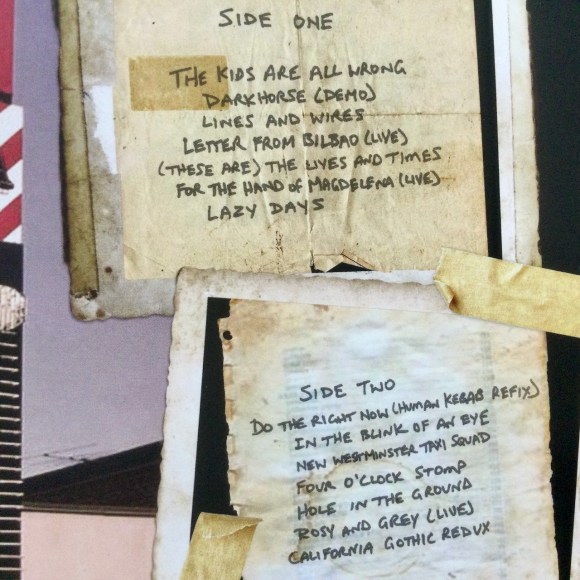 SIDE ONE
THE KIDS ARE ALL WRONG
DARKHORSE (DEMO)
LINES AND WIRES
LETTER FROM BILBAO (LIVE)
(THESE ARE) THE LIVES AND TIMES
FOR THE HAND OF MAGDELENA (LIVE)
LAZY DAYS
SIDE TWO
DO THE RIGHT NOW (HUMAN KEBAB REFIX)
IN THE BLINK OF AN EYE
NEW WESTMINSTER TAXI SQUAD
FOUR O'CLOCK STOMP
HOLE IN THE GROUND
ROSY AND GREY (LIVE)
CALIFORNIA GOTHIC REDUX